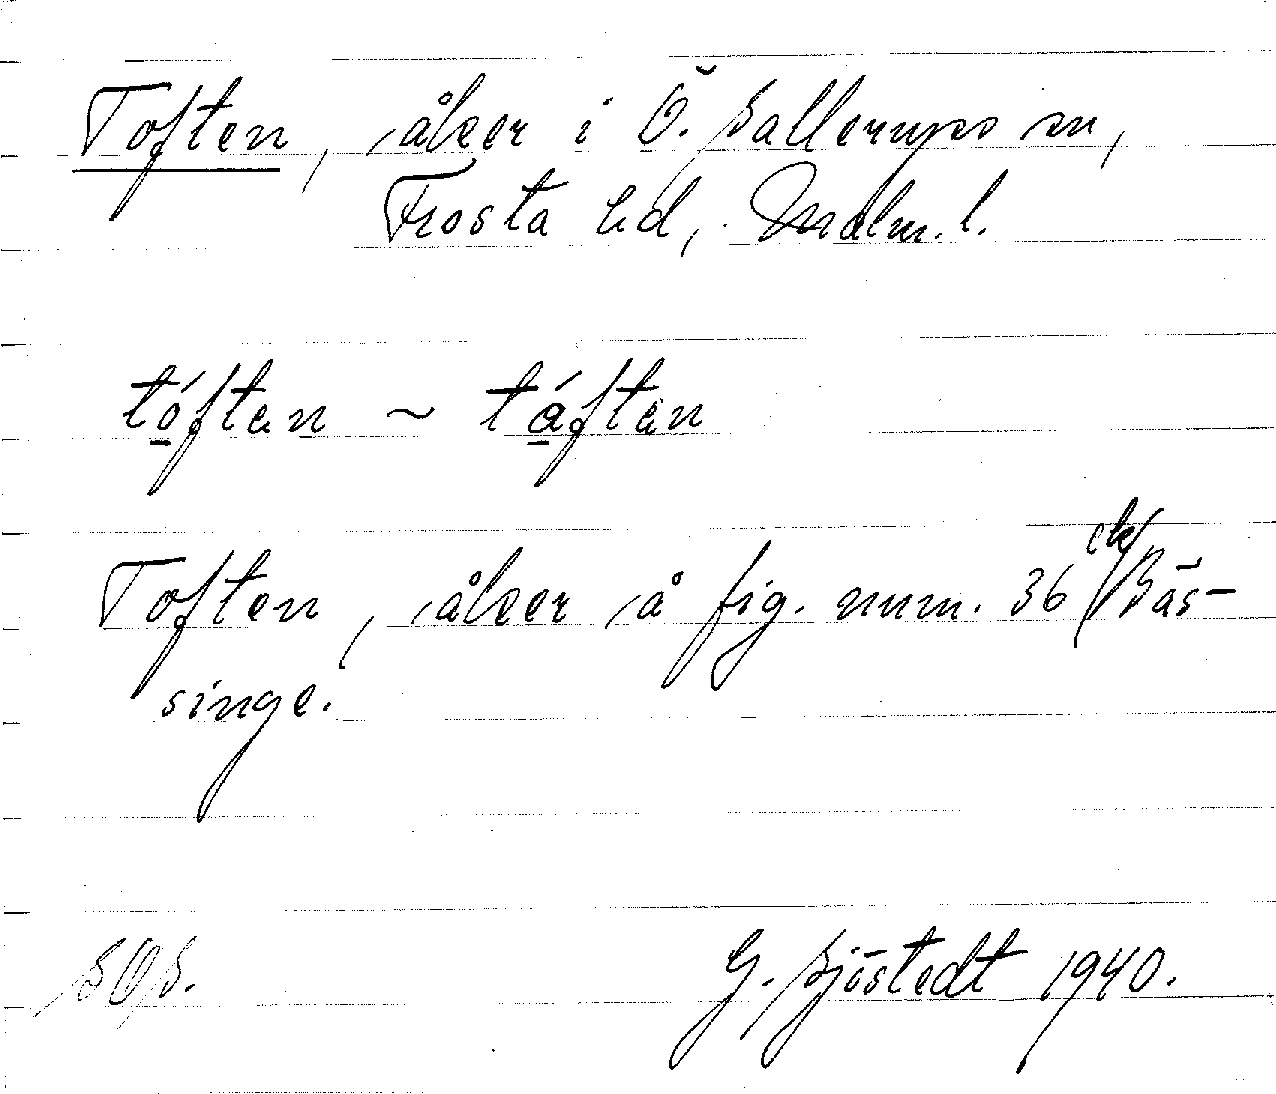 Toften, åker i Ö. Sallerups sn,
Frosta hd, Malm. l.
tóften ~ táftен
Toften, åker å fig. num. 36 Bäs-
singe.
SOS.
G. Sjöstedt 1940.